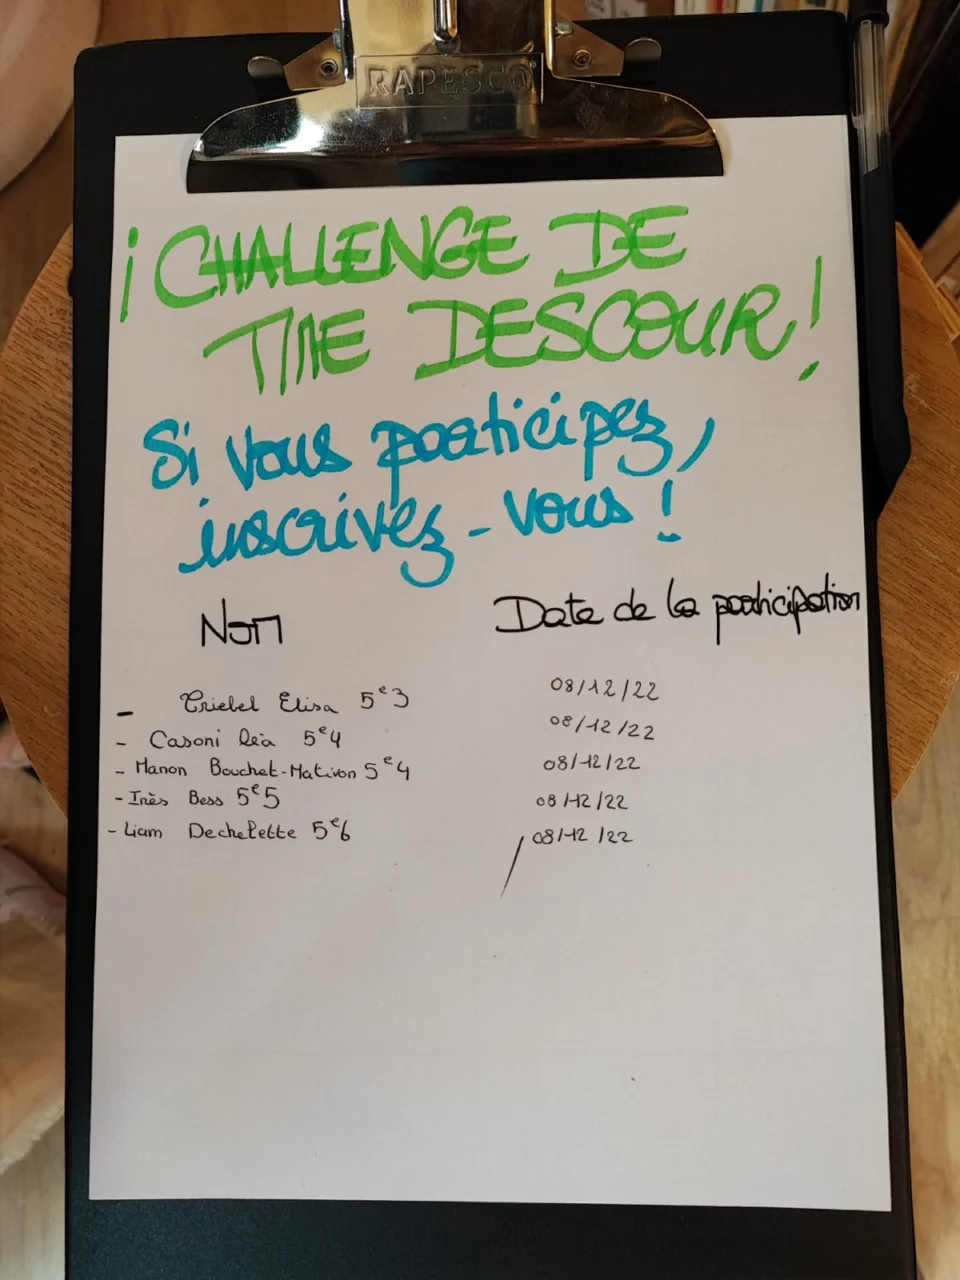 RAPESCO
¡ CHALLENGE DE
TINE DESCOUR!
Si vous participez,
inscrivez-vous !
Nom Date de la participation
- Criebel Elisa 5e3 08/12/22
- Casoni léa 5e4 08/12/22
- Manon Bouchet-Mativon 5e4 08/12/22
- Inès Bess 5e5 08/12/22
- Liam Dechelette 5e6 08/12/22